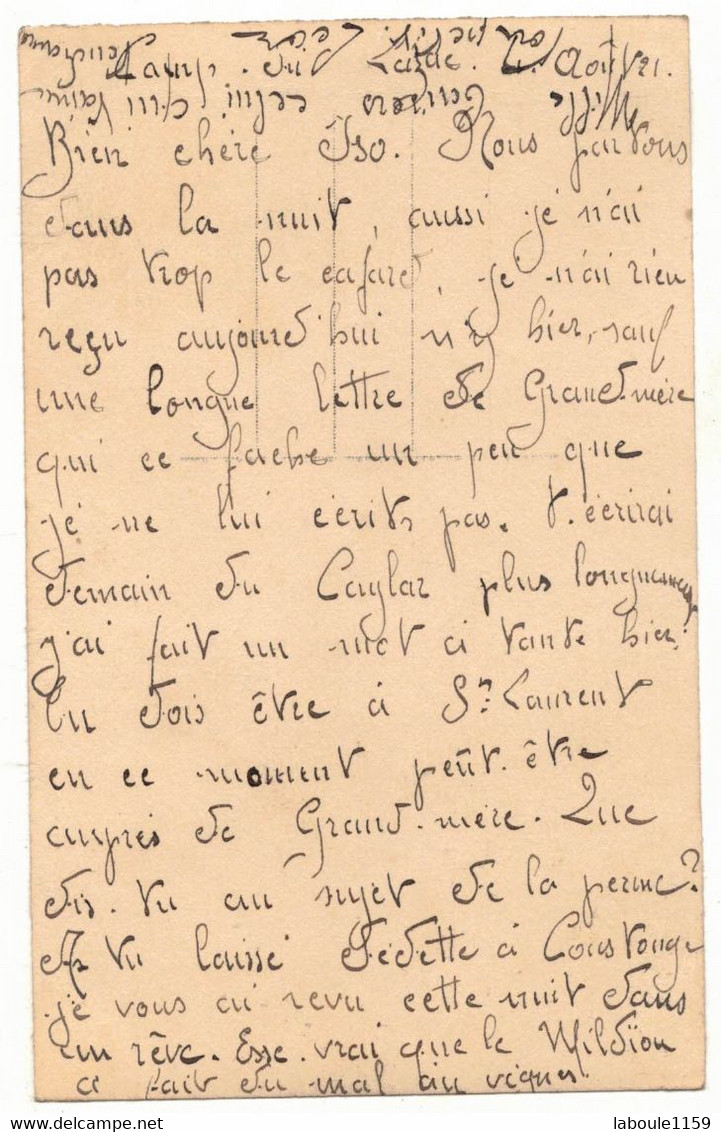 Camp du Larzac. Août 21.
Bien chère Iso. Nous partons
dans la nuit, aussi je n'ai
pas trop le cafard, je n'ai rien
reçu aujourd'hui ni hier, sauf
une longue lettre de Grand-mère
qui ce fache un peu que
je ne lui écrits pas. t'écrirai
demain du Caylar plus longuement
j'ai fait un mot à tante hier.
Tu dois être à St Laurent
en ce moment peût-être
aupres de Grand-mère. Que
dis-tu au sujet de la perme?
As tu laissé Dédette à Coustouge
je vous ai revu cette nuit dans
un rêve. Esse vrai que le Mildiou
a fait du mal au vignes.
celui qui t'aime
tendrement
ton petit Léon
laboule1159